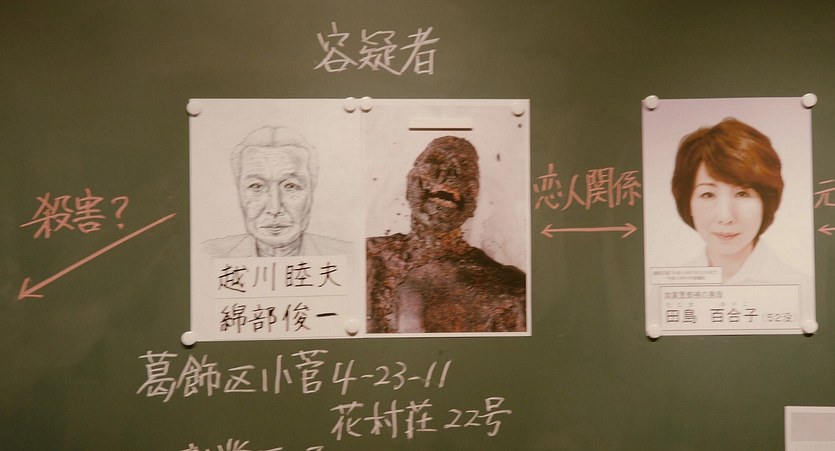 容疑者
殺害?
越川睦夫
綿部俊一
恋人関係
田島 百合子 (52歳
元
葛飾区小菅4-23-11
花村荘22号